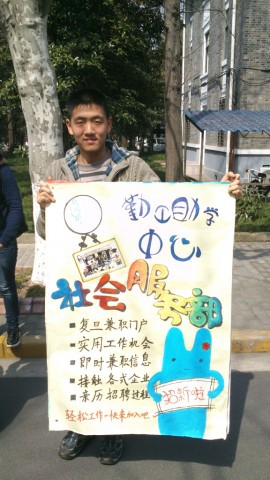 勤工助学
中心
社会服务部
复旦兼职门户
实用工作机会
即时兼职信息
接触各式企业
亲历招聘过程
轻松工作~快来加入吧
招新啦